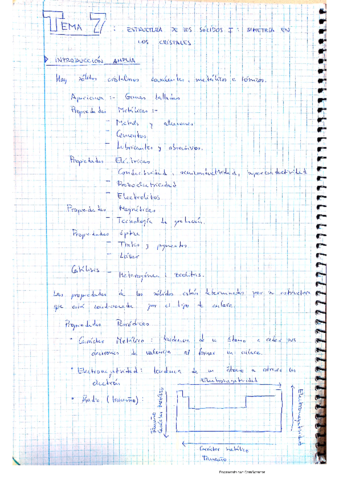 TEMA 7: ESTRUCTURA DE LOS SÓLIDOS I: SIMETRÍA EN
LOS CRISTALES
INTRODUCCIÓN AMPLIA
Hay sólidos cristalinos covalentes, metálicos e iónicos.
Apariencia :-
Propiedades Mecánicas :-
- Metales y aleaciones
- Cementos
- Lubricantes y abrasivos.
Propiedades Eléctricas
- Conductividad, semiconductividad, superconductividad
- Electrolitos
Propiedades Magnéticas
- Tecnología de
Propiedades ópticas
- y pigmentos
- Láser
Catálisis - Heterogénea: zeolitas.
Las propiedades de los sólidos están determinadas por su estructura
que está condicionada por el tipo de enlace.
Propiedades Periódicas
* Carácter Metálico: tendencia de un átomo a ceder sus
electrones de valencia al formar un enlace.
* Electronegatividad: tendencia de un átomo a atraer un
electrón.
Electronegatividad
* Radio (tamaño):
Tamaño
Carácter metálico
Electronegatividad
Carácter metálico
Tamaño